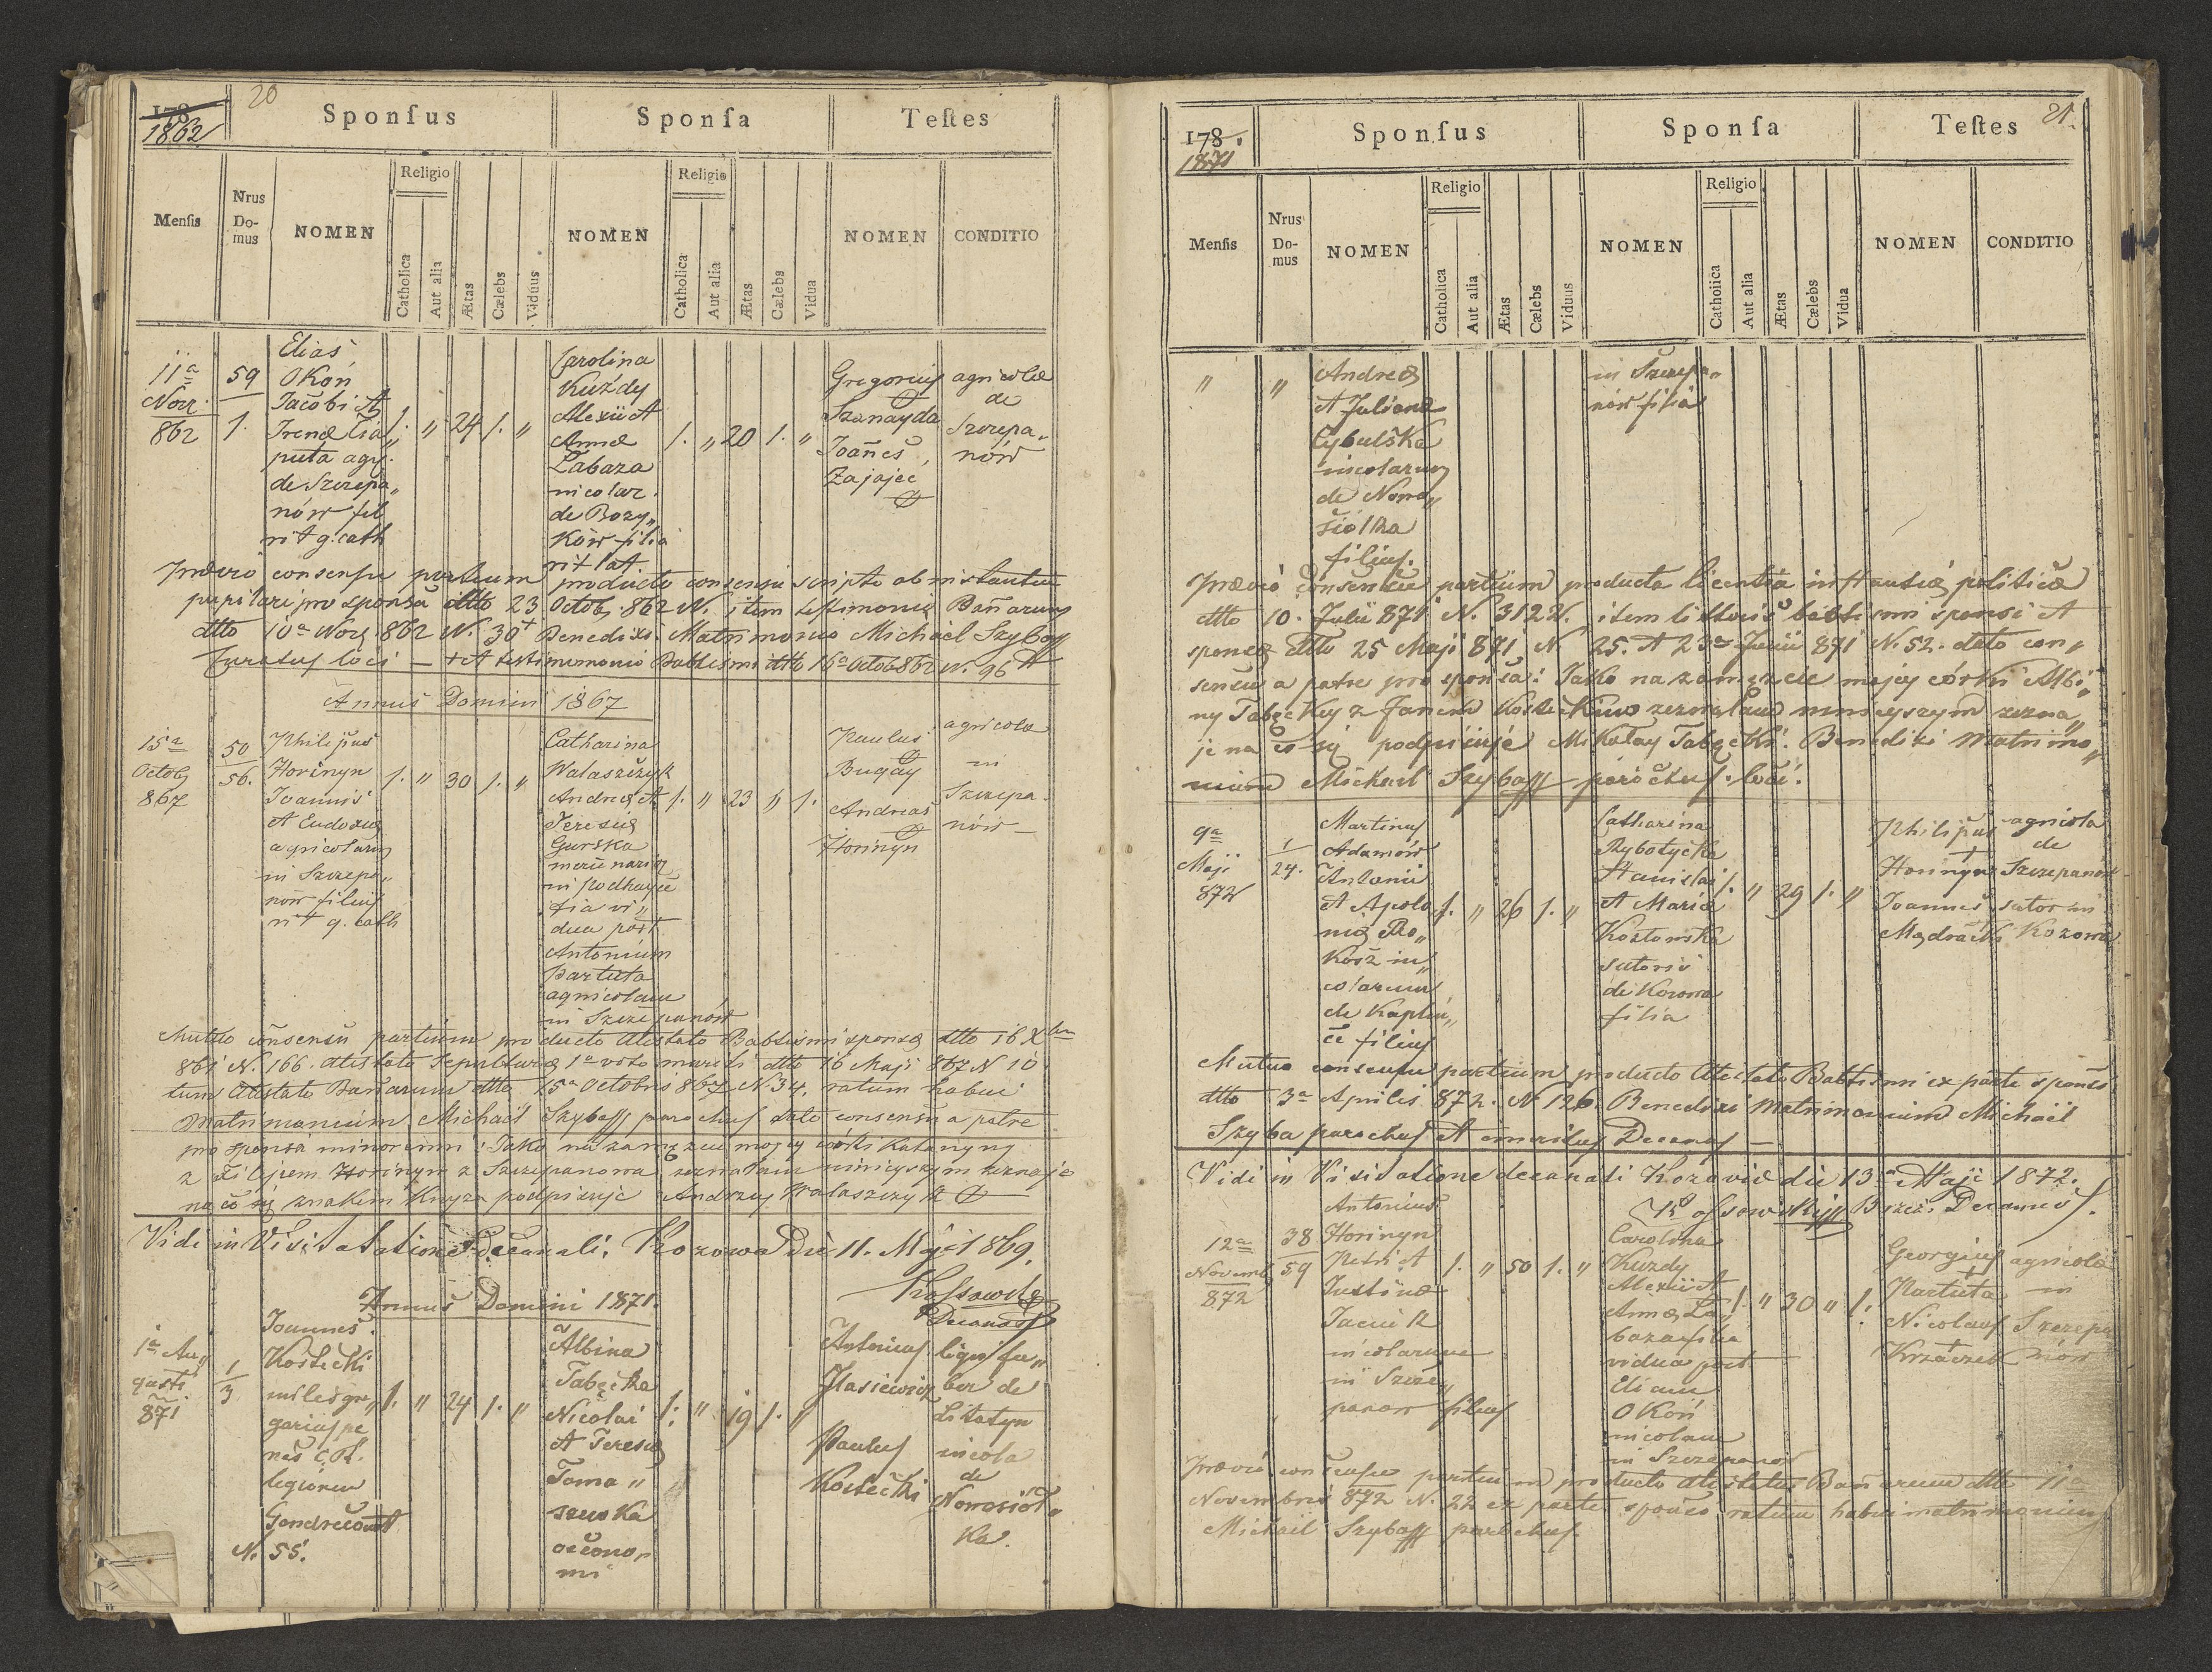 20
178
1862
Sponſus
Sponſa
Teſtes
Menſis
Nrus Do-mus
NOMEN
Religio
Catholica
Aut alia
Ætas
Cælebs
Viduus
NOMEN
Religio
Catholica
Aut alia
Ætas
Cælebs
Vidua
NOMEN
CONDITIO
11a
Novr.
862
59
1.
Elias
Okoń
Jacobi et
Irenæ
puta agr.
de Szczepa„
nów fil
rit g. cath
1. „ 24 1. „
Carolina
Kuzdy
Alexii et
Annæ
Łabaza
nicolar.
de Bozy„
ków filia
rit lat.
1. „ 20 1. „
Gregorius
Szanayda
Joanes
Zajajec
agricolæ
de
Szczepa„
nów
Prævio consensu partium producto consensu scripto ab instantia
pupilari pro sponsa dtto 23 Octob. 862 N. item testimonia Banarum
dtto 10a Novr. 862 N. 30+ Benedixi Matrimonio Michael Szyba
Curatus loci — + et testimonio Babtismi dtto 16a Octob 862 N. 96
Annus Domini 1867
15a
Octob
867
50
56.
Philipus
Horinyn
Joannis
et Eudoxiæ
agricolarum
in Szczepa„
nów filius
rit g. cath
1. „ 30 1. „
Catharina
Walaszczyk
Andreæ et
Teresiæ
Gurska
mercenariæ
in Podhayce
filia vi„
dua post
Antonium
Partuta
agricolam
in Szczepanów
1. „ 23 „ 1.
Paulus
Bugay
Andreas
Horinyn
agricola
in
Szczepa„
nów —
Mutuo consensu partium producto Atestato Babtismi sponsæ dtto 16 Xbr
861 N. 166. Atestato Sepulturæ 1a voto mariti dtto 16 Maji 867 N 10
tum Atestato Banarum dtto 15a Octobris 867 N 34. ratum habui
Matrimonium Michaël Szyba parochus dato consensu a patre
pro sponsa minorenni: Jako na zamęzcie mojey córki Katarzyny
z Filipem Horinym z Szczepanowa zeznałam niniejszym zeznaje
na co się znakiem Krzyża podpisuje Andrzey Walaszczyk
Vidi in Visitatione Decanali. Kozowa Die 11. Maji 1869.
Kossowski
Decanus
Annus Domini 1871.
1a Au„
gusti
871
1
3
Joannes
Kostecki
miles gre„
garius pe
nes C.R.
legionem
Gondrecourt
N. 55.
1. „ 24 1. „
Albina
Tabęcka
Nicolai
et Teresiæ
Toma„
szewska
œcono„
mi
1. „ 19 1. „
Antonius
Jlasiewicz
Paulus
Kostecki
lignifa„
ber de
Litatyn
nicola
de
Nowosiół„
ka.
21.
178.
1871
Sponſus
Sponſa
Teſtes
Menſis
Nrus Do-mus
NOMEN
Religio
Catholica
Aut alia
Ætas
Cælebs
Viduus
NOMEN
Religio
Catholica
Aut alia
Ætas
Cælebs
Vidua
NOMEN
CONDITIO
„
„
Andreæ
et Julianæ
Cybulska
nicolarum
de Nowo„
siółka
filius.
in Szczepa„
nów filia
Prævio Consensu partium producta licentia instantiæ politicæ
dtto 10. Julii 871 N. 3122. item litteris babtismi sponsi et
sponsæ dtto 25 Maji 871 N 25. et 23a Junii 871 N. 52. dato con„
sensu a patre pro sponsa: Jako na zamęzcie mojey córki Albi„
ny Tabęckiey z Janem Kosteckim zeznałem niniejszym zezna„
je na co się podpisuje Mikołay Tabęcki. Benedixi Matrimo„
nium Michael Szyba parochus loci.
9a
Maji
872
1
24.
Martinus
Adamów
Antonii
et Apolo
niæ Pro„
kosz in„
colarum
de Kaplin„
ce filius
1. „ 26 1. „
Catharina
Rybotycka
Stanislai
et Mariæ
Kozłowska
sutoris
de Kozowa
filia
1. „ 29 1. „
Philipus
Horinyn
Joannes
Mądracki
agricola
de
Szczepanów
sutor in
Kozowa
Mutuo consensu partium producto Atestato Babtismi ex parte sponsi
dtto 3a Aprilis 872. N 126. Benedixi Matrimonium Michaël
Szyba parochus et emeritus Decanus —
Vidi in Visitatione decanali Kozovie die 13a Maji 1872.
Kossowski Brzez. Decanus.
12a
Novemb
872
38
59
Antonius
Horinyn
Petri et
Justinæ
Jaciuk
nicolarum
in Szcze„
panów filius
1. „ 50 1. „
Carolina
Kuzdy
Alexii et
Annæ Ła„
baza filia
vidua post
Eliam
Okoń
nicolam
in Szczepanów
1. „ 30 „ 1.
Georgius
Partuta
Nicolaus
Krzaczek
agricolæ
in
Szczepa
nów
Prævio consensu partium producto Atestatu Banarum dtto 11a
Novembris 872 N. 22 ex parte sponso ratum habui matrimonium
Michaël Szyba parochus.